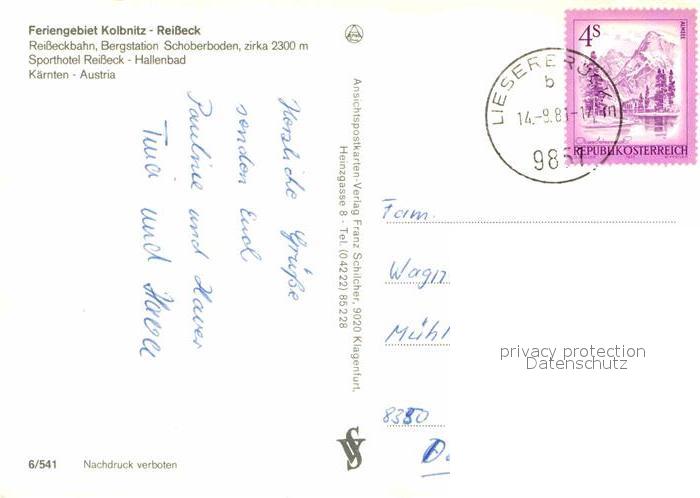 Feriengebiet Kolbnitz - Reißeck
Reißeckbahn, Bergstation Schoberboden, zirka 2300 m
Sporthotel Reißeck - Hallenbad
Kärnten - Austria
Herzliche Grüße
senden Euch
Pauline und Xaver
und
6/541 Nachdruck verboten
Ansichtspostkarten-Verlag Franz Schilcher, 9020 Klagenfurt,
Heinzgasse 8 - Tel. (04222) 85228
4S
ALMSEE
REPUBLIK ÖSTERREICH
LIESERBRÜCKE
b
14.-9.81-17
Fam.
Wagn
Mühl
8380
D.
privacy protection
Datenschutz